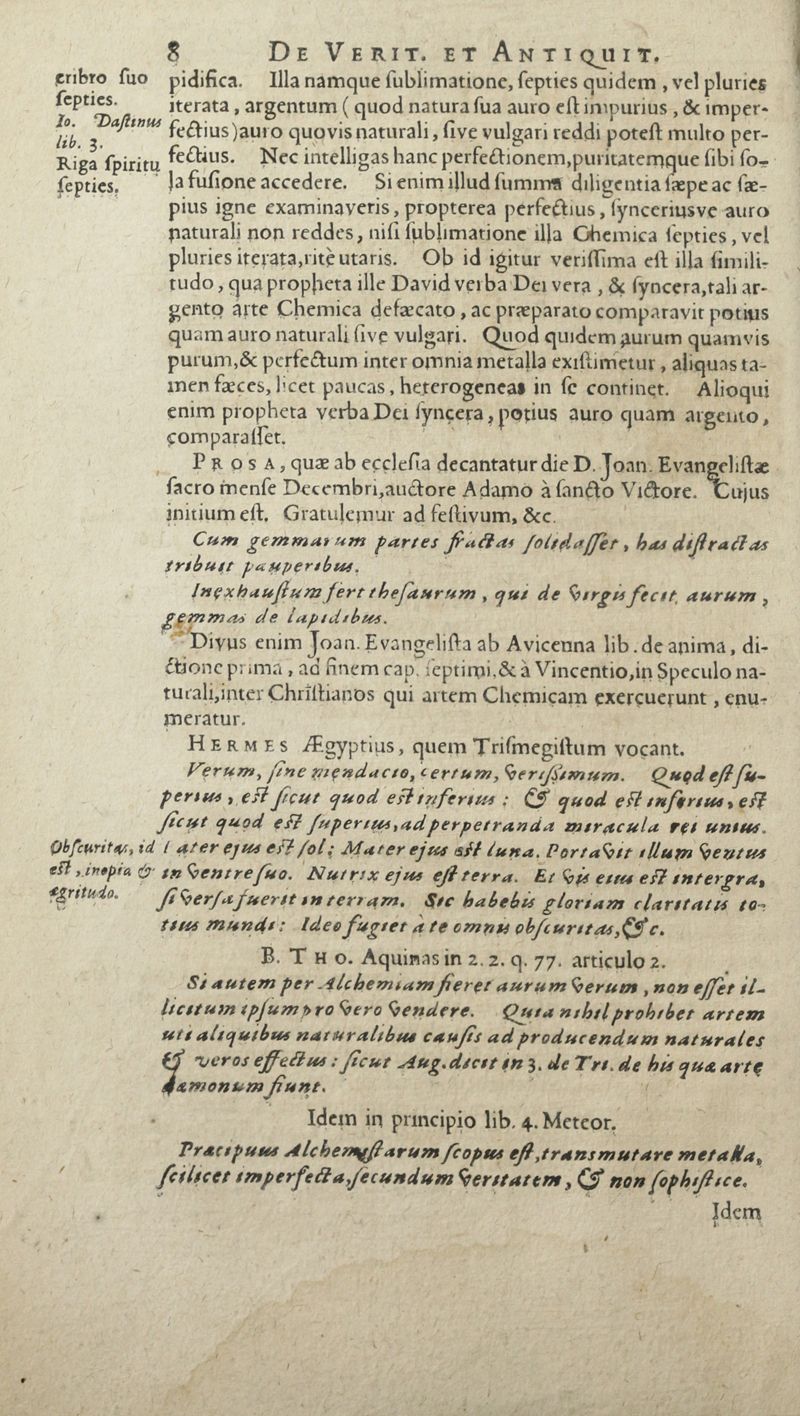 8 DE VERIT. ET ANTIQUIT.
cribro ſuo
ſepties.
Io. Daſtinus
lib. 3.
Riga ſpiritu
ſepties.
pidifica. Illa namque ſublimatione, ſepties quidem , vel pluries
iterata , argentum ( quod natura ſua auro eſt impurius , & imper-
fectius )auro quovis naturali , ſive vulgari reddi poteſt multo per-
fectius. Nec intelligas hanc perfectionem,puritatemque ſibi ſo-
la fuſione accedere. Si enim illud ſumma diligentia ſæpe ac ſæ-
pius igne examinaveris , propterea perfectius , ſynceriusve auro
naturali non reddes , niſi ſublimatione illa Chemica ſepties , vel
pluries iterata,ritè utaris. Ob id igitur veriſſima eſt illa ſimili-
tudo , qua propheta ille David verba Dei vera , & ſyncera,tali ar-
gento arte Chemica defæcato , ac præparato comparavit potius
quam auro naturali ſive vulgari. Quod quidem aurum quamvis
purum,& perfectum inter omnia metalla exiſtimetur , aliquas ta-
men fæces, licet paucas , heterogeneas in ſe continet. Alioqui
enim propheta verba Dei ſyncera , potius auro quam argento ,
comparaſſet.
PROSA , quæ ab eccleſia decantatur die D. Joan. Evangeliſtæ
ſacro menſe Decembri,auctore Adamo à ſancto Victore. Cujus
initium eſt. Gratulemur ad feſtivum, &c.
Cum gemmarum partes fractas ſolidaſſet , has diſtractas
tribuit pauperibus.
Inexhauſtum fert theſaurum , qui de virgis fecit aurum ,
gemmas de lapidibus.
Divus enim Joan. Evangeliſta ab Avicenna lib . de anima , di-
ctione prima , ad finem cap. ſeptimi,& à Vincentio,in Speculo na-
turali,inter Chriſtianos qui artem Chemicam exercuerunt , enu-
meratur.
HERMES Ægyptius , quem Triſmegiſtum vocant.
Verum, ſine mendacio, certum, veriſſimum. Quod eſt ſu-
perius , eſt ſicut quod eſt inferius : & quod eſt inferius , eſt
ſicut quod eſt ſuperius,ad perpetranda miracula rei unius.
Obſcuritas, id
eſt , inopia &
ægritudo.
Pater ejus eſt ſol ; Mater ejus eſt luna. Portavit illum ventus
in ventre ſuo. Nutrix ejus eſt terra. Et vis eius eſt intergra,
ſi verſa fuerit in terram. Sic habebis gloriam claritatis to-
tius mundi : Ideo fugiet à te omnis obſcuritas,&c.
B. THO. Aquinas in 2. 2. q. 77. articulo 2.
Si autem per Alchemiam fieret aurum verum , non eſſet il-
licitum ipſum pro vero vendere. Quia nihil prohibet artem
uti aliquibus naturalibus cauſis ad producendum naturales
& veros effectus : ſicut Aug. dicit in 3. de Tri. de his quæ arte
dæmonum fiunt.
Idem in principio lib. 4. Meteor.
Præcipuus Alchemyſtarum ſcopus eſt,transmutare metalla,
ſcilicet imperfecta,ſecundum veritatem , & non ſophiſtice.
Idem